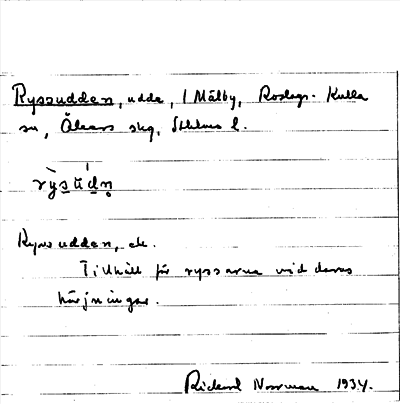 Ryssudden, udde, I Mälby, Roslags-Kulla
sn, Åkers skg, Sthlms l.
rỳsúdn̥
Ryssudden, -ar.
Tillhåll för ryssarna vid deras
härjningar.
Rickard Norrman 1934.